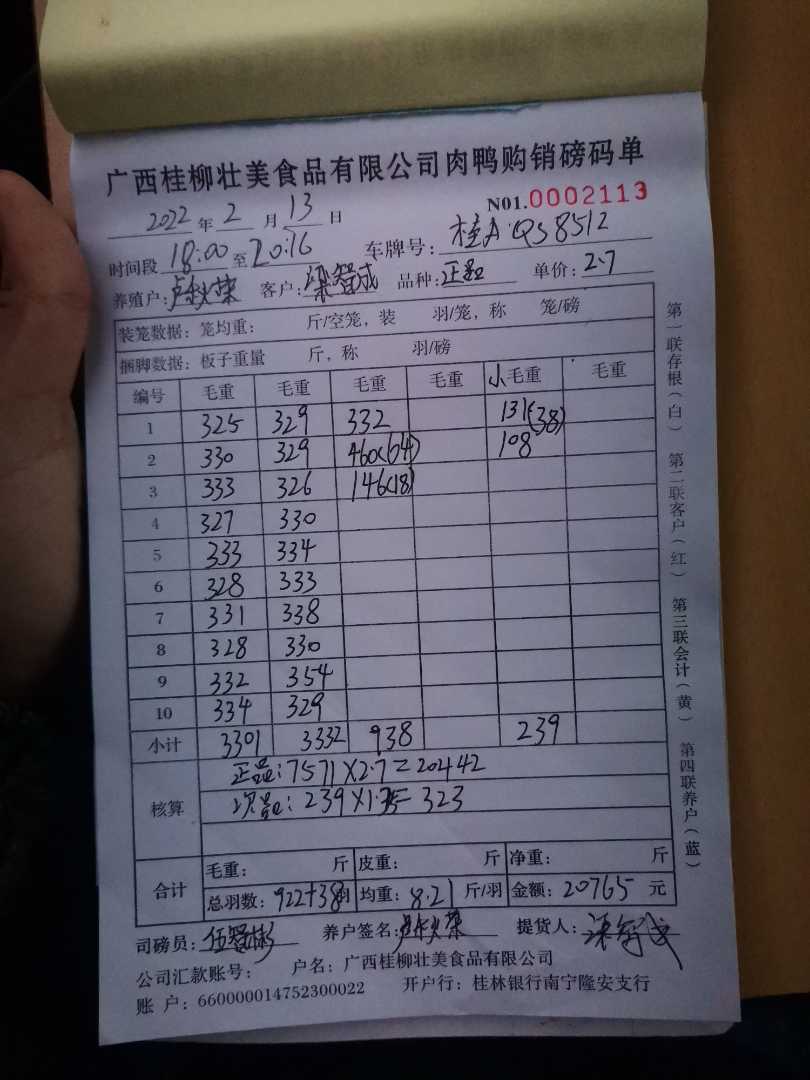 广西桂柳壮美食品有限公司肉鸭购销磅码单
N01.0002113
2022 年 2 月 13 日
时间段 18:00 至 20:16 车牌号: 桂A·QS8512
养殖户: 卢火荣 客户: 梁智成 品种: 正品 单价: 2.7
装笼数据: 笼均重: 斤/空笼, 装 羽/笼, 称 笼/磅
捆脚数据: 板子重量 斤, 称 羽/磅
编号 毛重 毛重 毛重 毛重 小毛重 毛重
1 325 329 332 131(38)
2 330 329 460(64) 108
3 333 326 146(18)
4 327 330
5 333 334
6 328 333
7 331 338
8 328 330
9 332 354
10 334 329
小计 3301 3332 938 239
核算 正品: 7571×2.7=20442
次品: 239×1.35=323
合计 毛重: 斤 皮重: 斤 净重: 斤
总羽数: 922+38羽 均重: 8.21 斤/羽 金额: 20765 元
司磅员: 伍智彬 养户签名: 卢火荣 提货人: 梁智成
公司汇款账号: 户名: 广西桂柳壮美食品有限公司
账 户: 660000014752300022 开户行: 桂林银行南宁隆安支行
第一联存根(白) 第二联客户(红) 第三联会计(黄) 第四联养户(蓝)